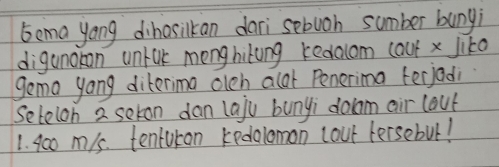 Gema yang dihasilkan dari sebuah sumber bunyi
digunakan untuk menghitung kedalam laut x jika
gema yang diterima oleh alat Penerima terjadi.
Setelah 2 sekon dan laju bunyi dalam air laut
1.400 m/s. tentukan kedalaman laut tersebut!